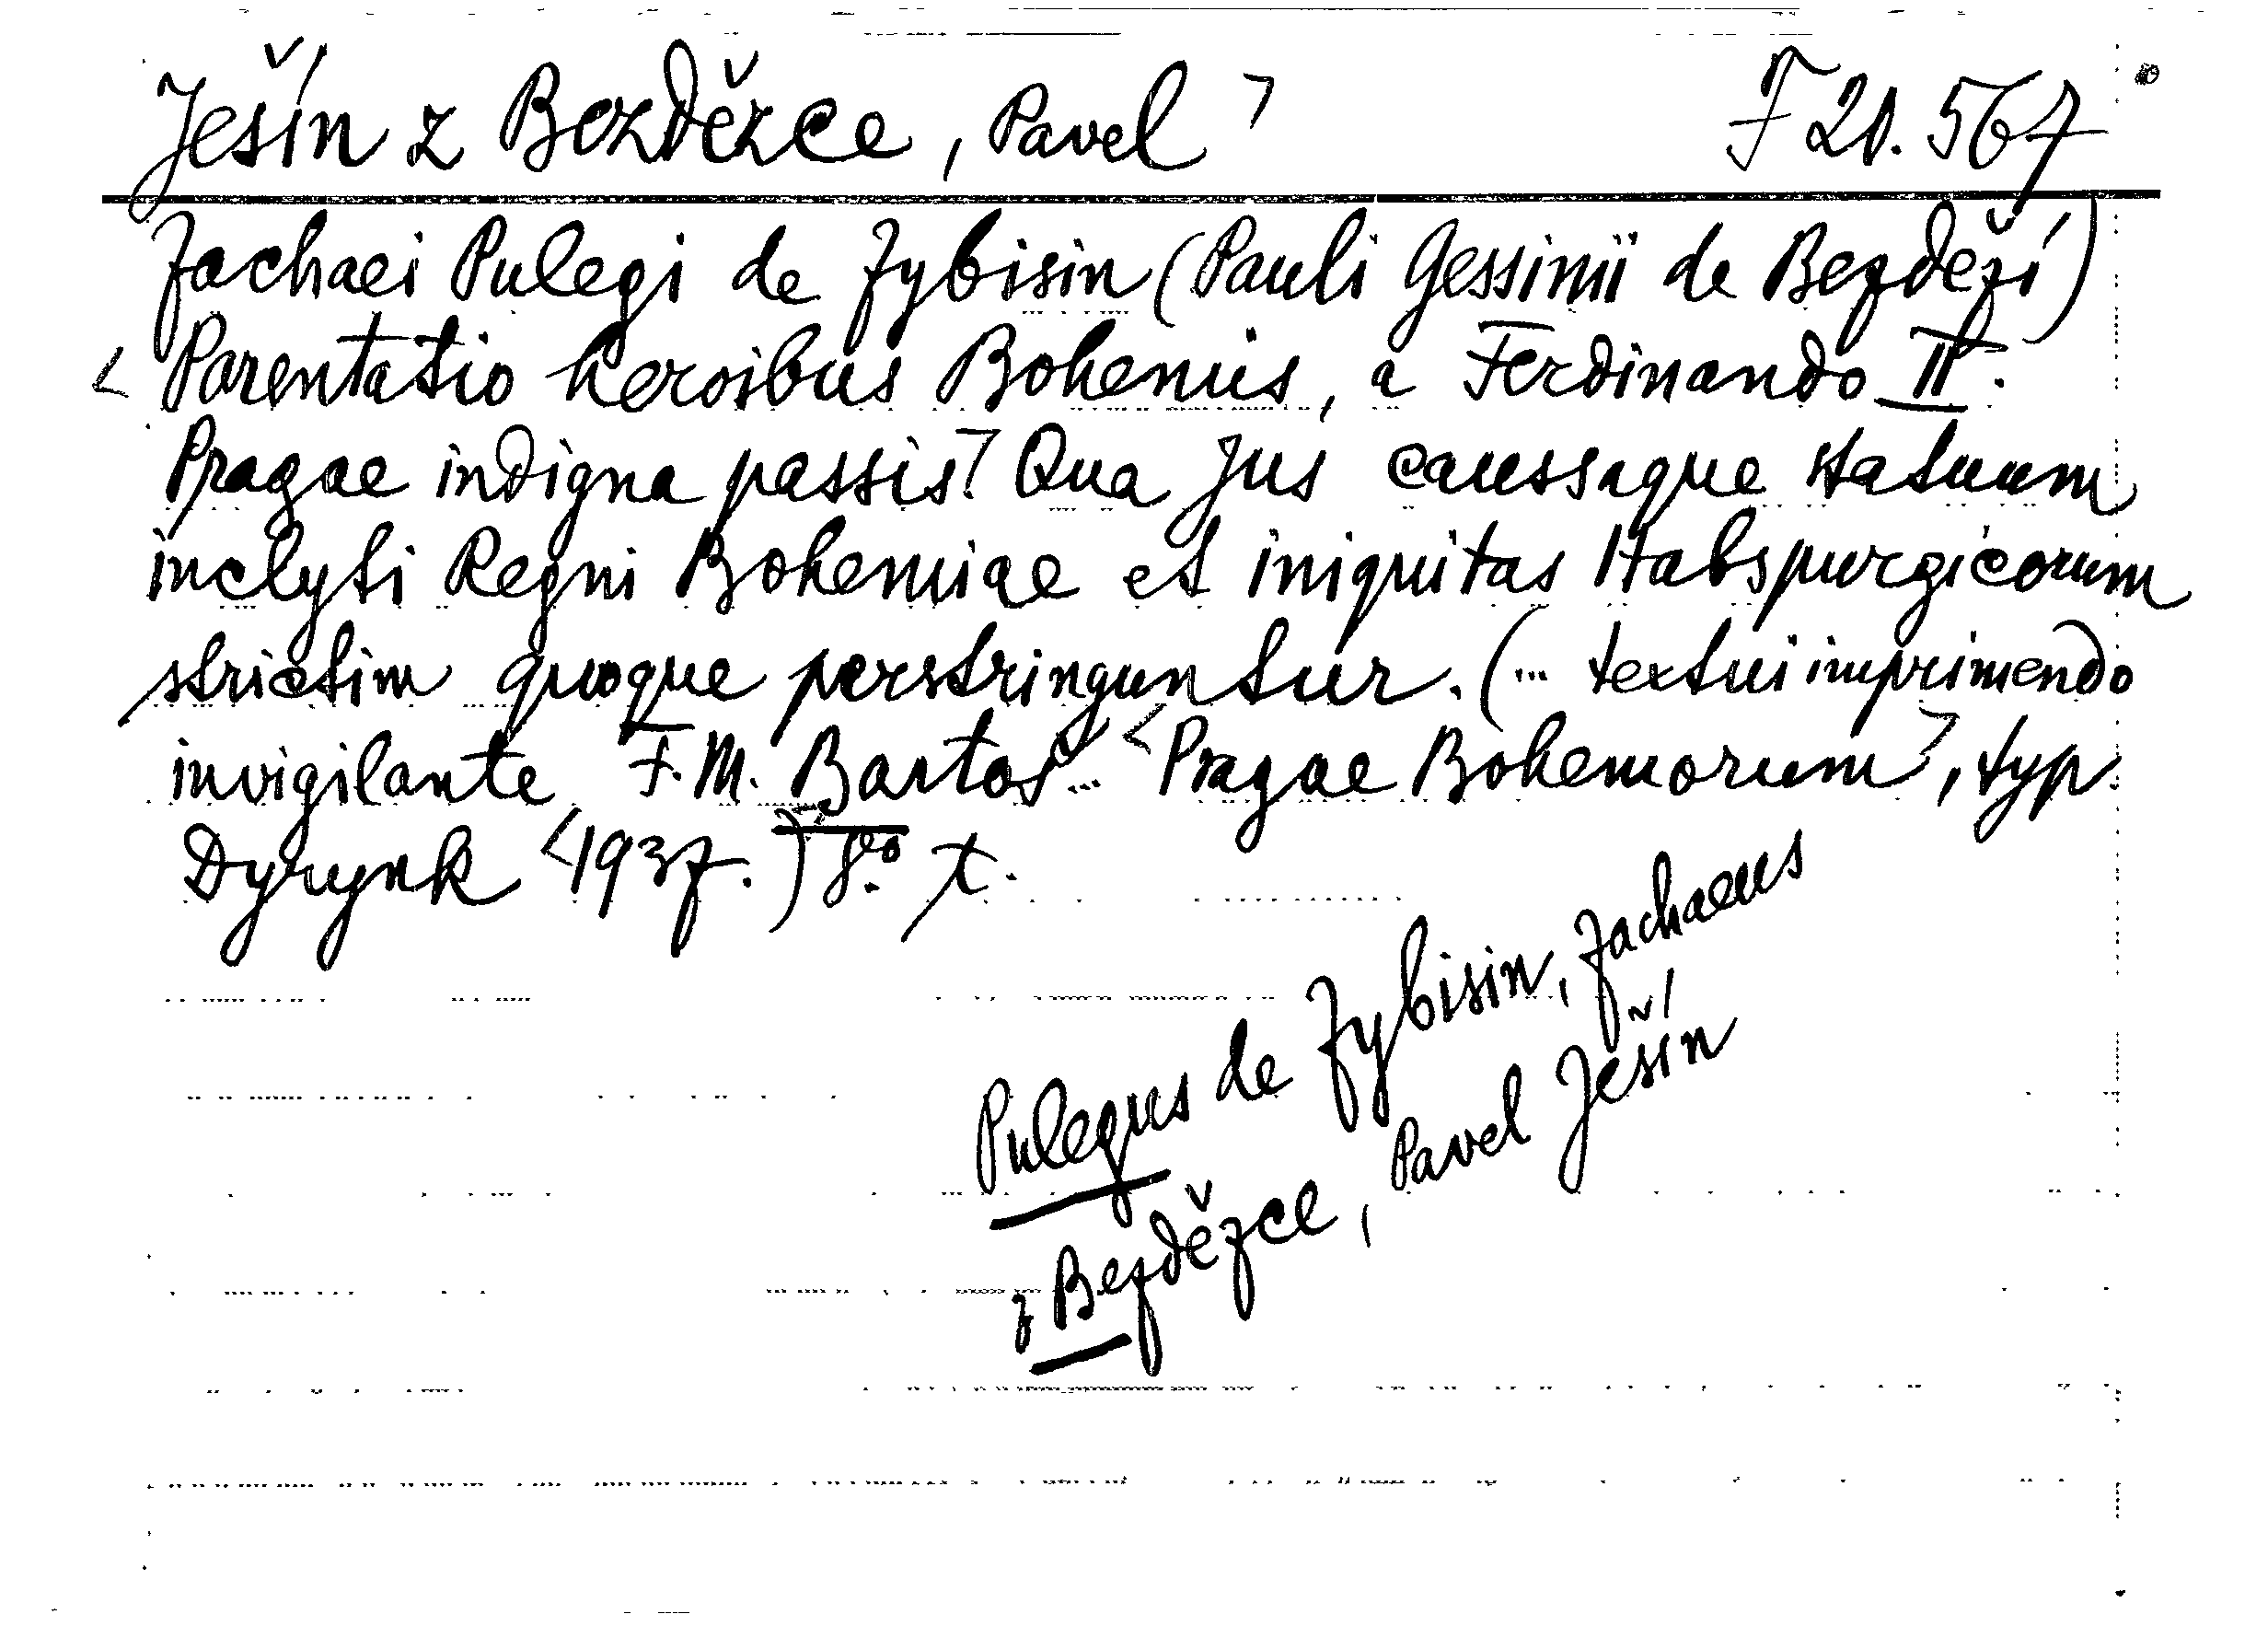 Ješín z Bezdězce, Pavel ⌝ F 21.567
Zachaei Pulegi de Zybisin (Pauli Gessinii de Bezdězí)
< Parentatio heroibus Bohemis, a Ferdinando II.
Pragae indigna passis⌝. Qua jus caussaque statuum
inclyti Regni Bohemiae et iniquitas Habspurgicorum
strictim quoque perstringuntur. (... textui imprimendo
invigilante F. M. Bartoš ... <Pragae Bohemorum⌝, typ.
Dyrynk <1937.⌝) 8vo. t.
Pulegus de Zybisin, Zachaeus
z Bezdězce, Pavel Ješín